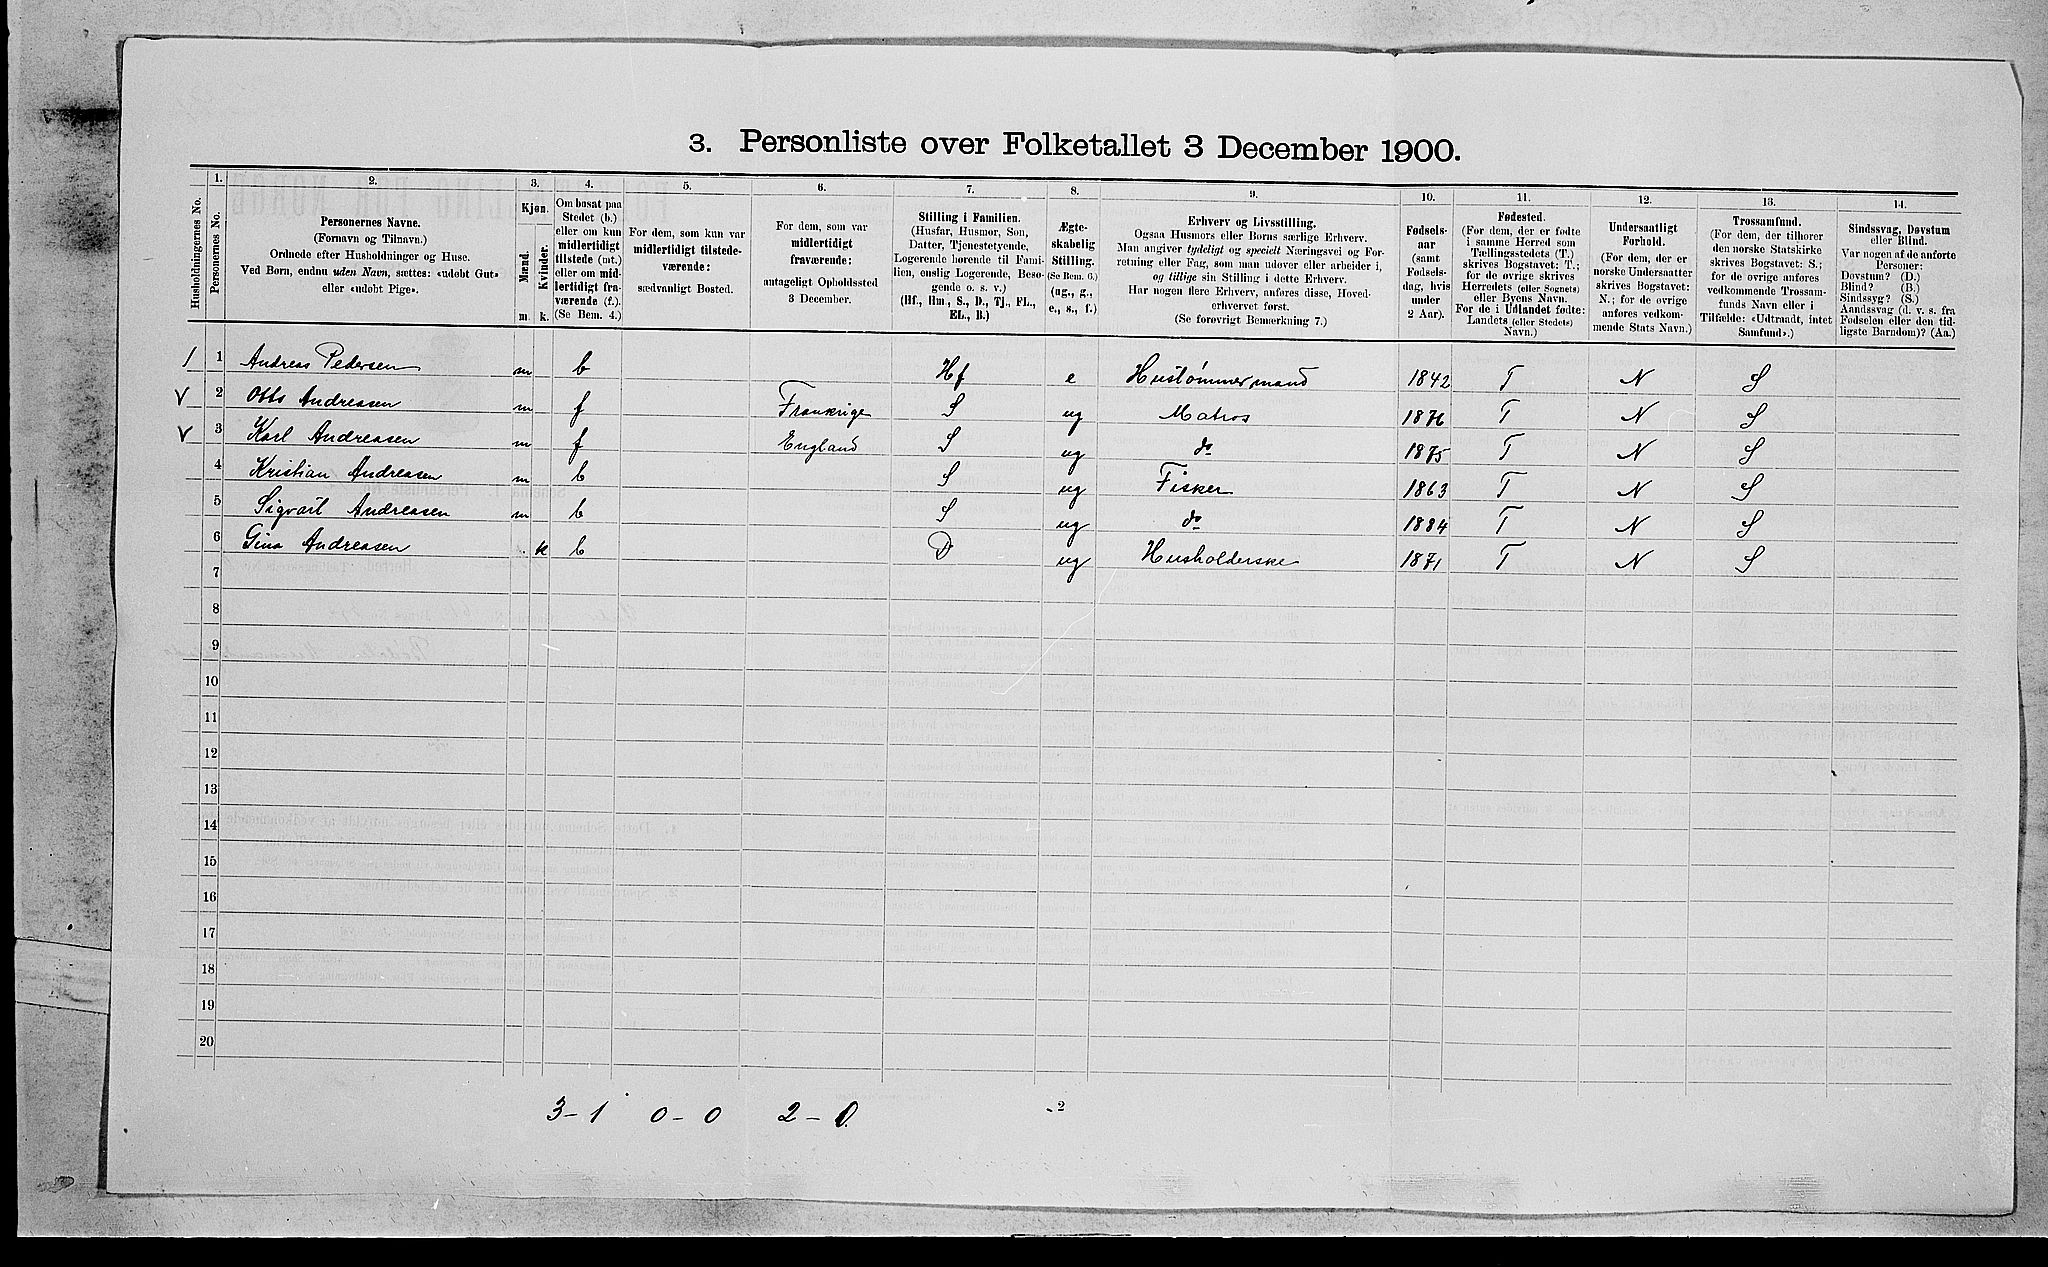 3. Personliste over Folketallet 3 December 1900.
1. 2. 3. 4. 5. 6. 7. 8. 9. 10. 11. 12. 13. 14.
Husholdningernes No.
Personernes No.
Personernes Navne.
(Fornavn og Tilnavn.)
Ordnede efter Husholdninger og Huse.
Ved Børn, endnu uden Navn, sættes: «udøbt Gut»
eller «udøbt Pige».
Kjøn.
Mænd.
Kvinder.
m. k.
Om bosat paa
Stedet (b.)
eller om kun
midlertidigt
tilstede (mt.)
eller om mid-
lertidigt fra-
værende (f.).
(Se Bem. 4.)
For dem, som kun var
midlertidigt tilstede-
værende:
sædvanligt Bosted.
For dem, som var
midlertidigt
fraværende:
antageligt Opholdssted
3 December.
Stilling i Familien.
(Husfar, Husmor, Søn,
Datter, Tjenestetyende,
Logerende hørende til Fami-
lien, enslig Logerende, Besø-
gende o. s. v.)
(Hf., Hm., S., D., Tj., FL.,
EL., B.)
Ægte-
skabelig
Stilling.
(Se Bem. 6.)
(ug., g.,
e., s., f.)
Erhverv og Livsstilling.
Ogsaa Husmors eller Børns særlige Erhverv.
Man angiver tydeligt og specielt Næringsvei og For-
retning eller Fag, som man udøver eller arbeider i,
og tillige sin Stilling i dette Erhverv.
Har nogen flere Erhverv, anføres disse, Hoved-
erhvervet først.
(Se forøvrigt Bemærkning 7.)
Fødsels-
aar
(samt
Fødsels-
dag, hvis
under
2 Aar).
Fødested.
(For dem, der er fødte
i samme Herred som
Tællingsstedets (T.)
skrives Bogstavet: T.;
for de øvrige skrives
Herredets (eller Sognets)
eller Byens Navn.
For de i Udlandet fødte:
Landets (eller Stedets)
Navn.)
Undersaatligt
Forhold.
(For dem, der er
norske Undersaatter
skrives Bogstavet:
N.; for de øvrige
anføres vedkom-
mende Stats Navn.)
Trossamfund.
(For dem, der tilhører
den norske Statskirke
skrives Bogstavet: S.;
for de øvrige anføres
vedkommende Trossam-
funds Navn eller i
Tilfælde: «Udtraadt, intet
Samfund».)
Sindssvag, Døvstum
eller Blind.
Var nogen af de anførte
Personer:
Døvstum? (D.)
Blind? (B.)
Sindssyg? (S.)
Aandssvag (d. v. s. fra
Fødselen eller den tid-
ligste Barndom)? (Aa.)
1 1 Andreas Pedersen m b Hf e Hustømmermand 1842 T N S
V 2 Otto Andreasen m f Frankrige S ug Matros 1876 T N S
V 3 Karl Andreasen m f England S ug do 1875 T N S
4 Kristian Andreasen m b S ug Fisker 1863 T N S
5 Sigvart Andreasen m b S ug do 1884 T N S
6 Gina Andreasen k b D ug Husholderske 1871 T N S
7
8
9
10
11
12
13
14
15
16
17
18
19
20
3-1 0-0 2-0. 2